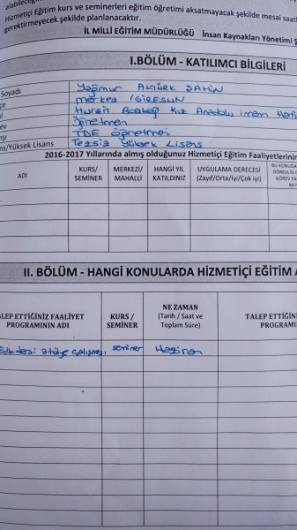 Hizmetiçi Eğitim kurs ve seminerleri eğitim öğretimi aksatmayacak şekilde mesai saat
gerektirmeyecek şekilde planlanacaktır.
İL MİLLİ EĞİTİM MÜDÜRLÜĞÜ İnsan Kaynakları Yönetimi Ş
I.BÖLÜM - KATILIMCI BİLGİLERİ
Soyadı Yağmur ŞAHİN
merkez / GİRESUN
Kız Anadolu imam
öğretmen
TDE öğretmeni
ns/Yüksek Lisans Tezsiz Yüksek Lisans
2016-2017 Yıllarında almış olduğunuz Hizmetiçi Eğitim Faaliyetlerinin
ADI KURS/ SEMİNER MERKEZİ/ MAHALLİ HANGİ YIL KATILDINIZ UYGULAMA DERECESİ (Zayıf/Orta/İyi/Çok iyi)
II. BÖLÜM - HANGİ KONULARDA HİZMETİÇİ EĞİTİM A
ALEP ETTİĞİNİZ FAALİYET PROGRAMININ ADI KURS / SEMİNER NE ZAMAN (Tarih / Saat ve Toplam Süre) TALEP ETTİĞİN PROGRAMI
atölye çalışması seminer Haziran